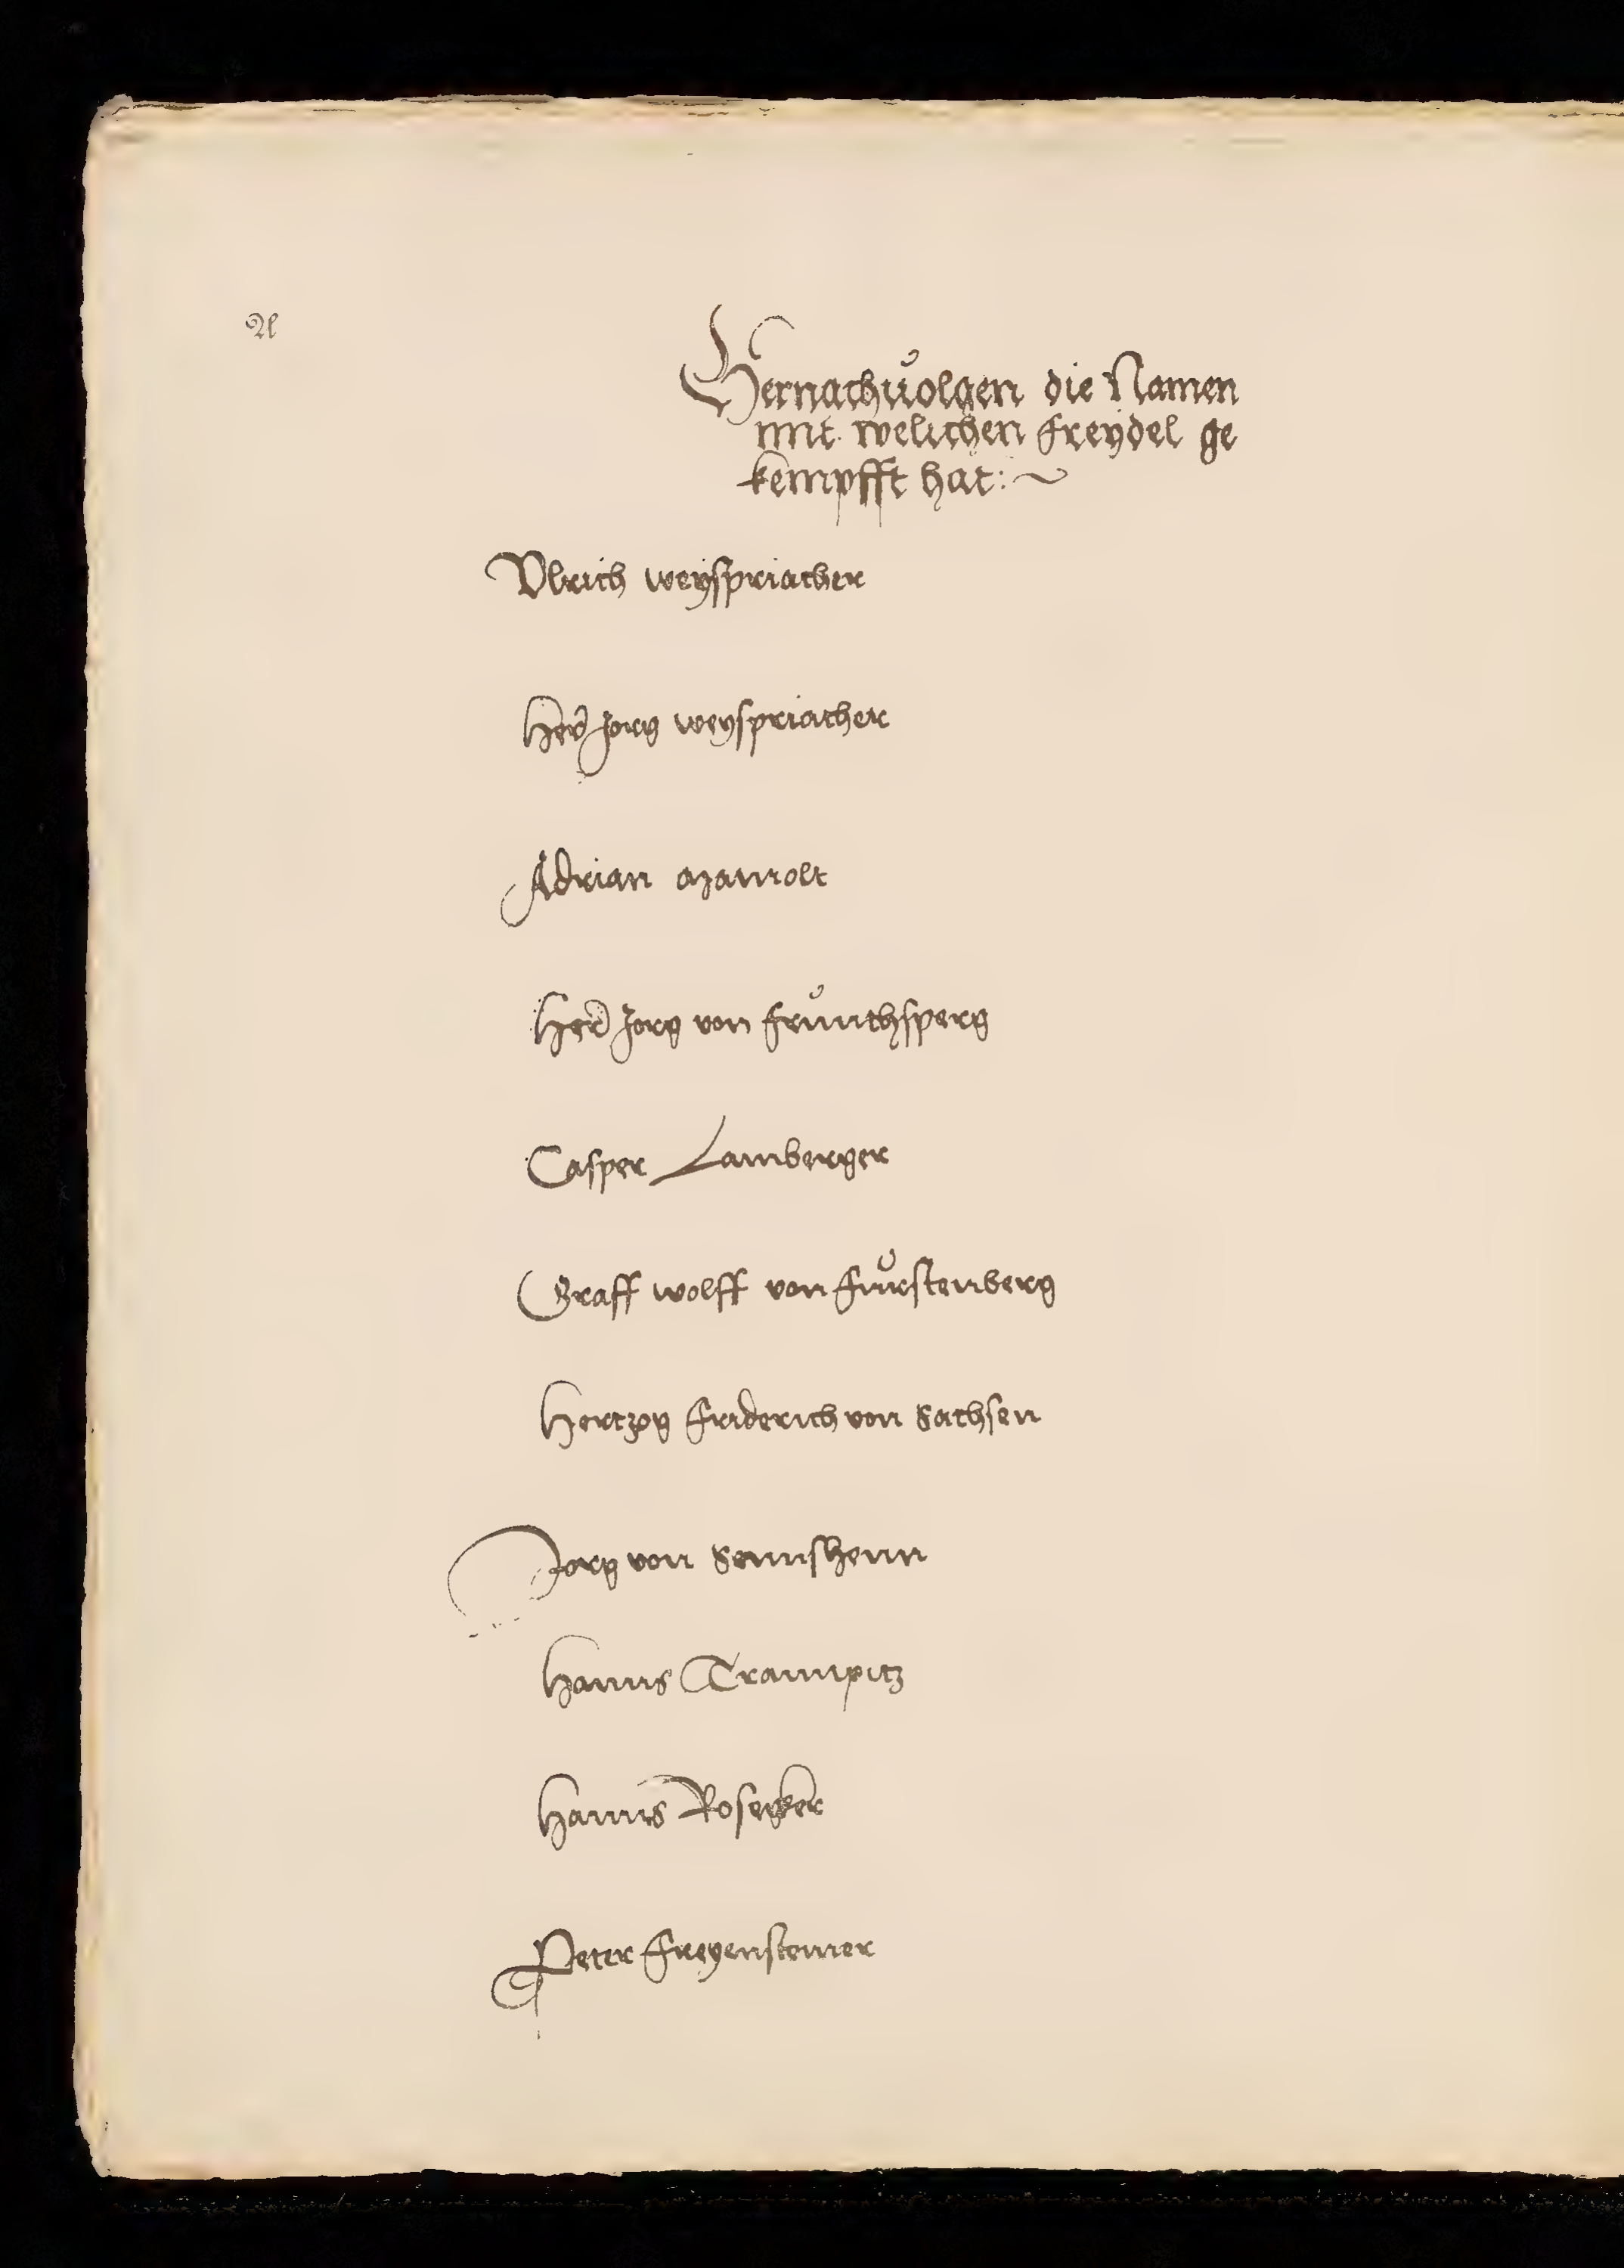 A
Hernachvolgen die Namen
mit welichen freydel ge
kempfft hat:~
Vlrich weyspriacher
Her Jorg weyspriacher
Adrian
Her Jorg von frunthsperg
Casper Lamberger
Graff wolff von furstenberg
Hertzog friderich von Sachsen
Jorg von
Hanns Trampitz
Hanns Rosecker
Peter freyensteiner